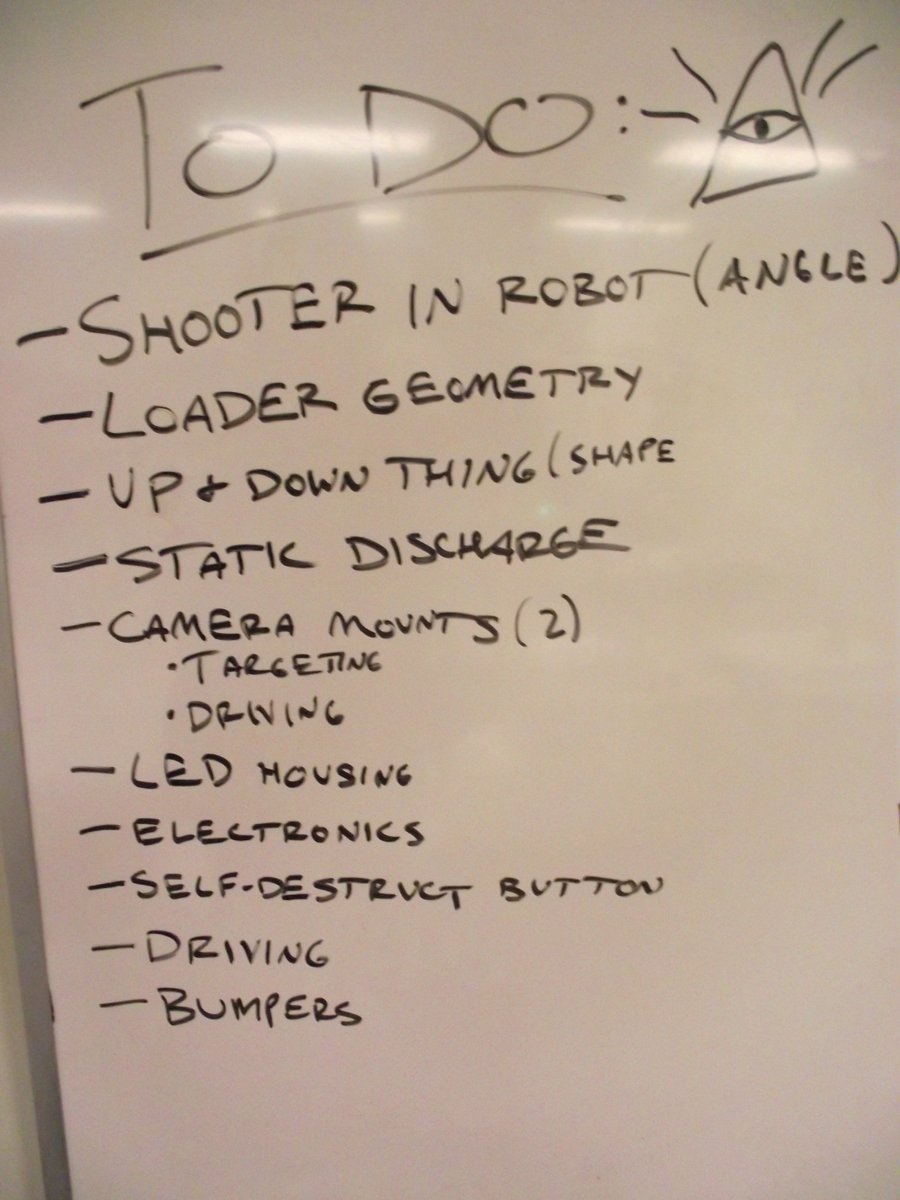 TO DO:
- SHOOTER IN ROBOT (ANGLE)
- LOADER GEOMETRY
- UP & DOWN THING (SHAPE
- STATIC DISCHARGE
- CAMERA MOUNTS (2)
• TARGETING
• DRIVING
- LED HOUSING
- ELECTRONICS
- SELF-DESTRUCT BUTTON
- DRIVING
- BUMPERS